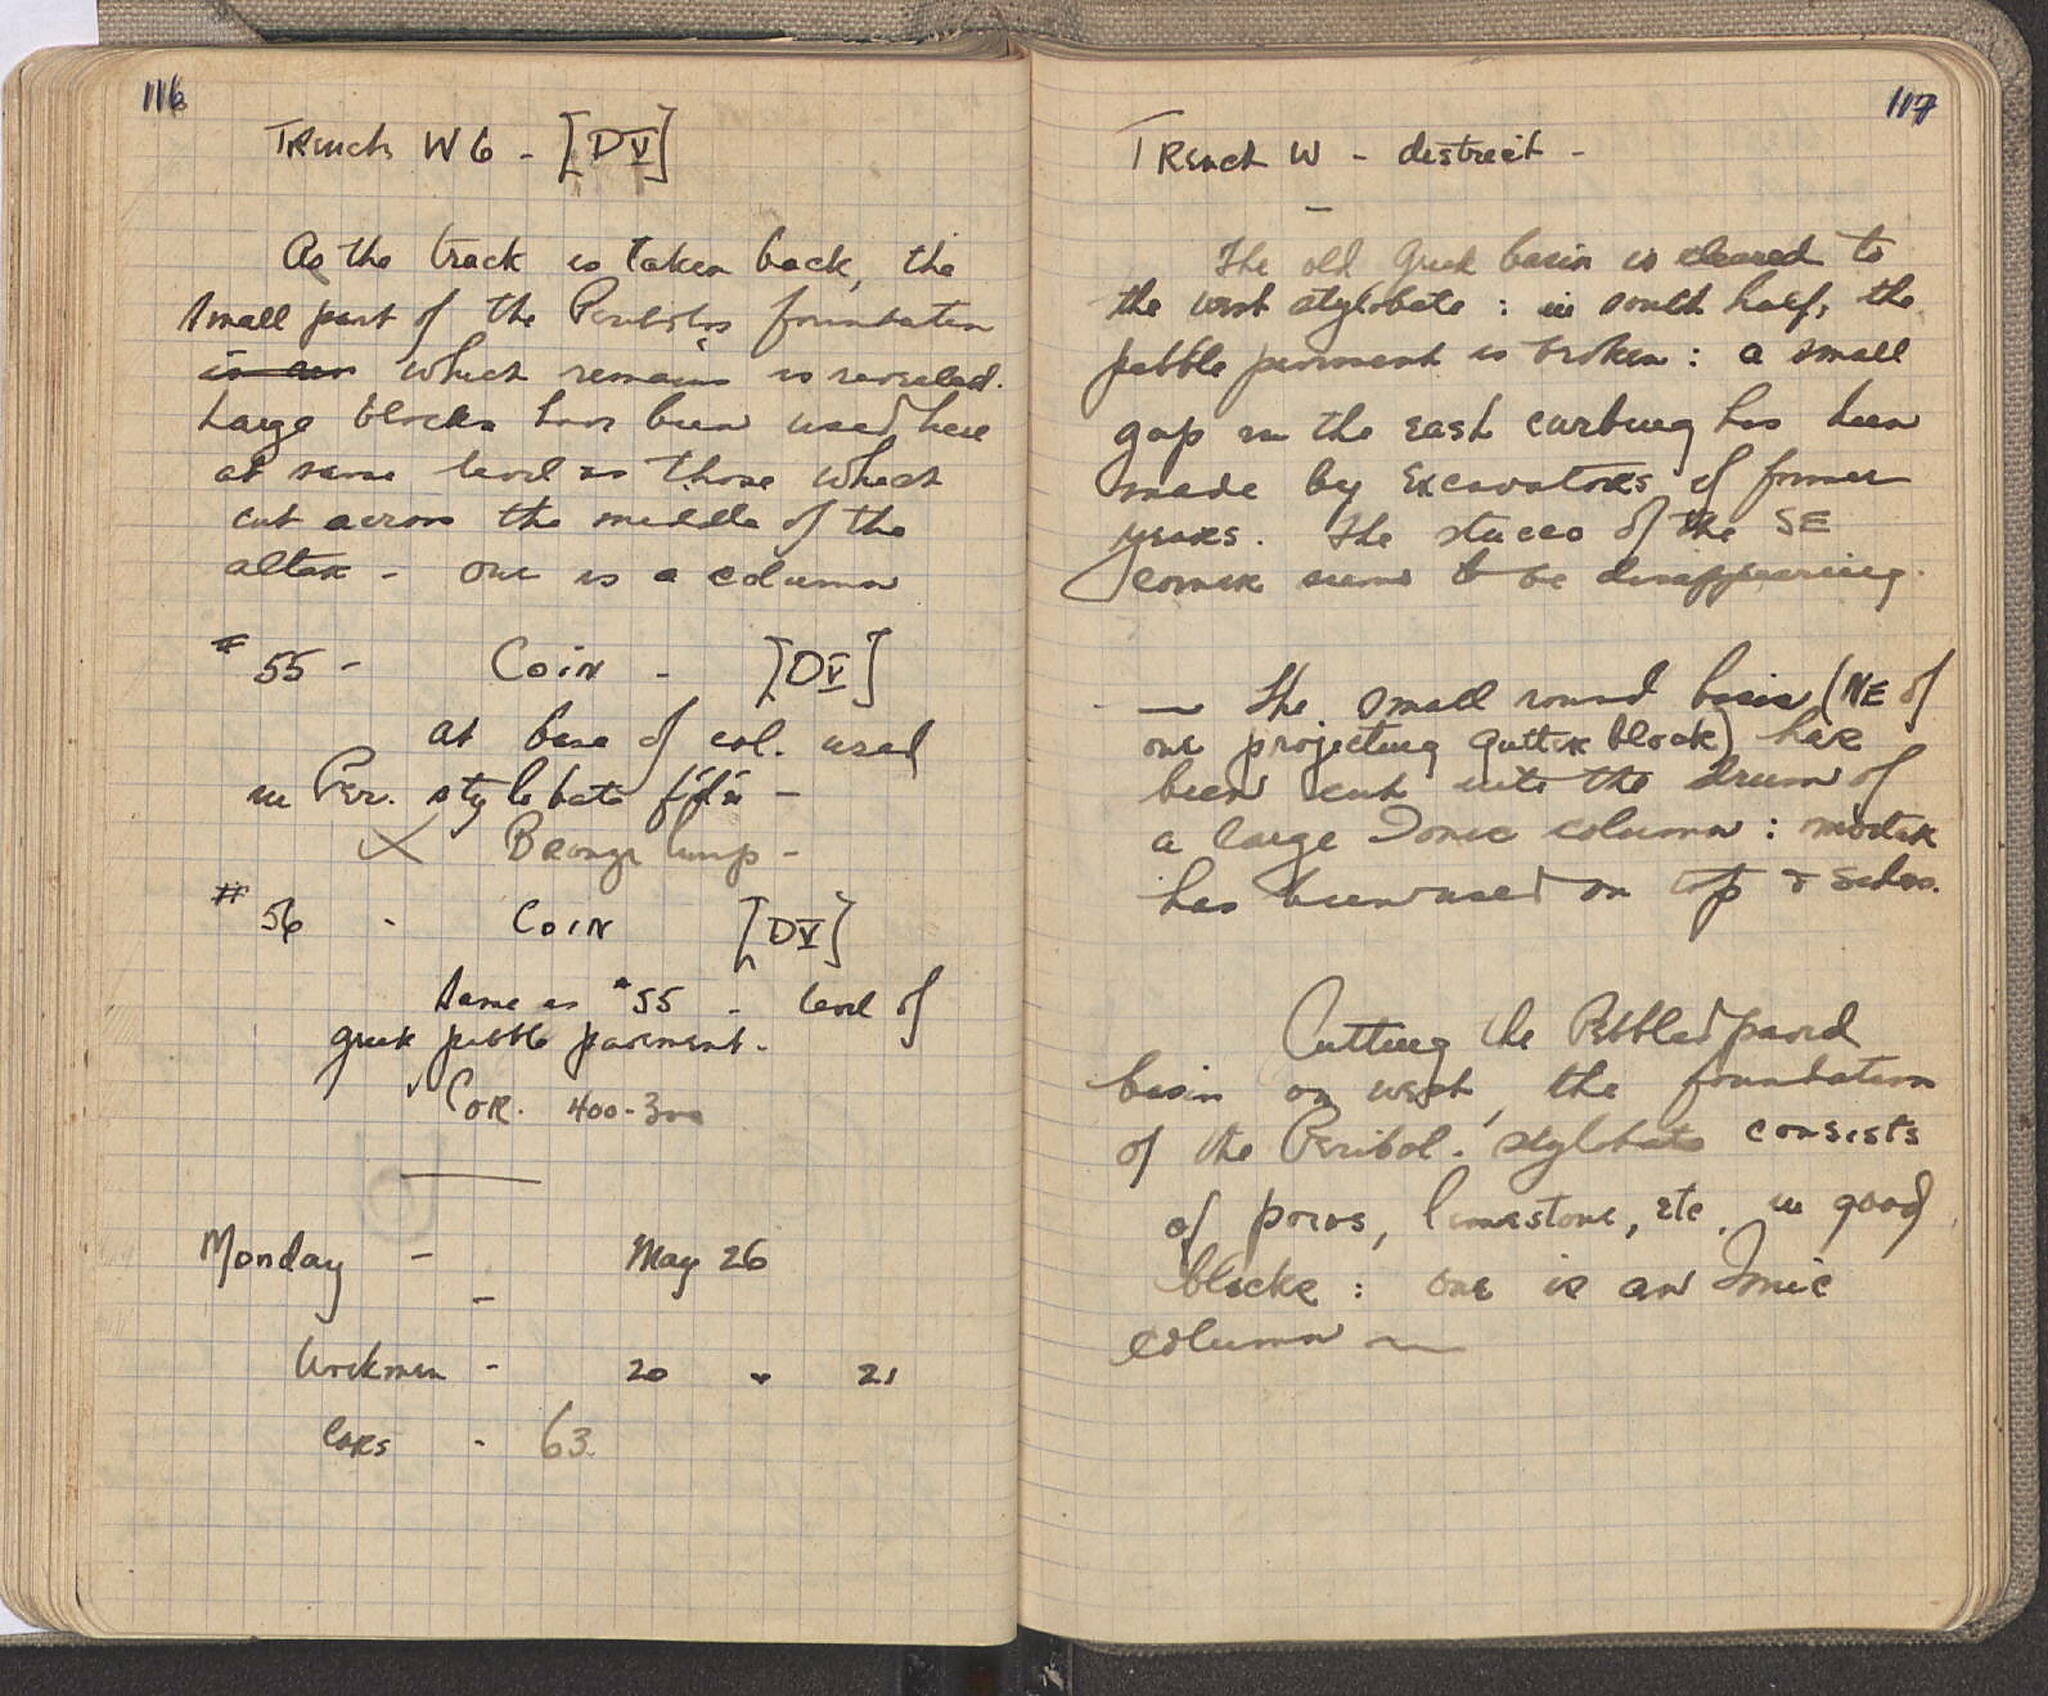 116
Trench W6 - [DV]
As the track is taken back, the
small part of the Peribolos foundation
which remains is revealed.
Large blocks have been used here
at same level as those which
cut across the middle of the
altar - one is a column
#55 - Coin - [DV]
at base of col. used
in Per. stylobate
X Bronze lump -
#56 - Coin [DV]
Same as #55 - level of
greek pebble pavement.
Cor. 400-300
Monday - May 26
Workmen - 20 - 21
Cars - 63.
117
Trench W - district -
The old Greek basin is cleared to
the west stylobate : in south half, the
pebble pavement is broken : a small
gap in the east curbing has been
made by Excavators of former
years. The stucco of the SE
corner seems to be disappearing.
— The small round basin (NE of
one projecting gutter block) has
been cut into the drum of
a large Ionic column : mortar
has been used on top & sides.
Cutting the Pebbled paved
basin on west, the foundation
of the Peribol. stylobate consists
of poros, limestone, etc. in good
blocks : one is an Ionic
column —